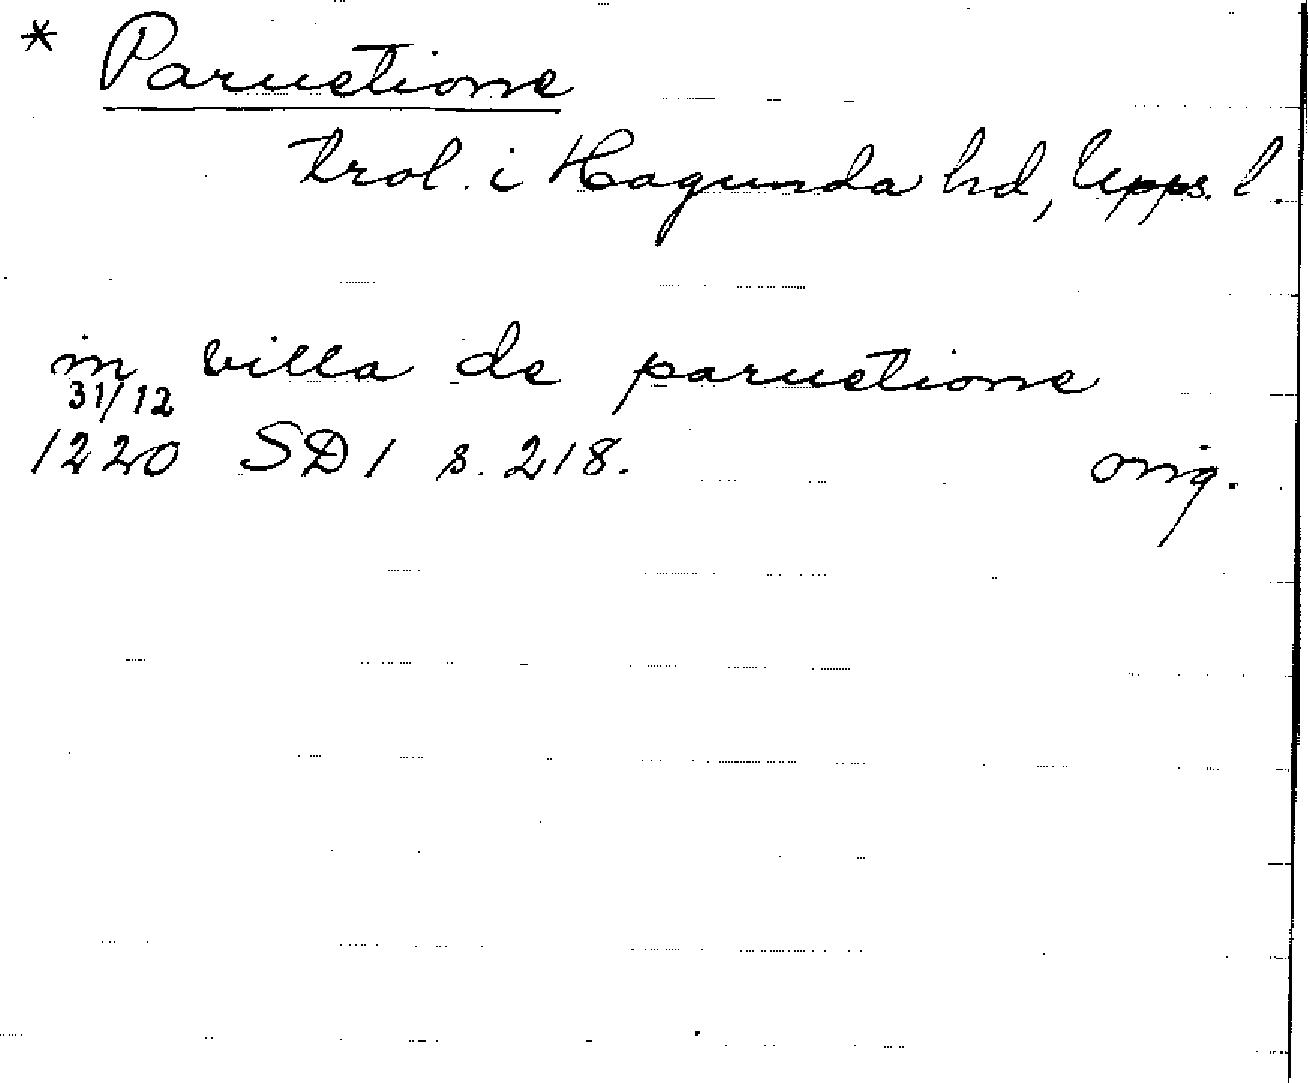 * Paruetione
trol. i Hagunda hd, Upps. l.
in villa de paruetione
31/12
1220 SD 1 s. 218. orig.